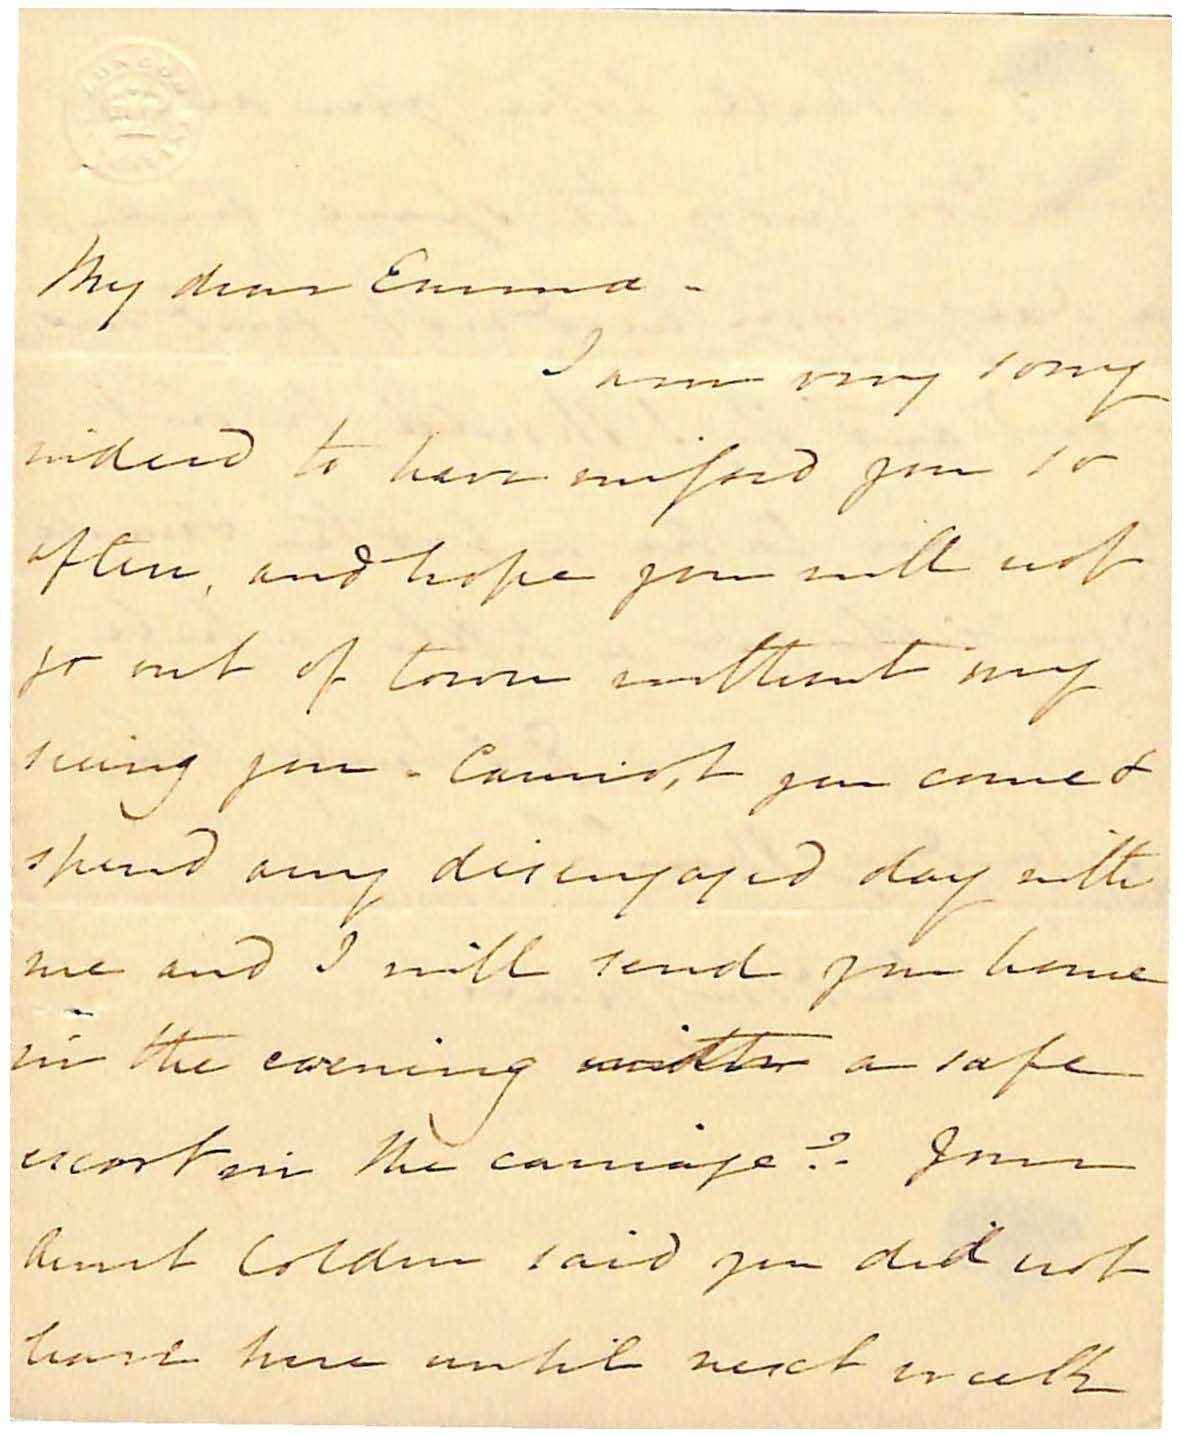 LONDON
My dear Emma -
I am very sorry
indeed to have missed you so
often, and hope you will not
go out of town without my
seeing you - Cannot you come &
spend any disengaged day with
me and I will send you home
in the evening with a safe
escort in the carriage? - Your
Aunt Colden said you did not
leave here until next week